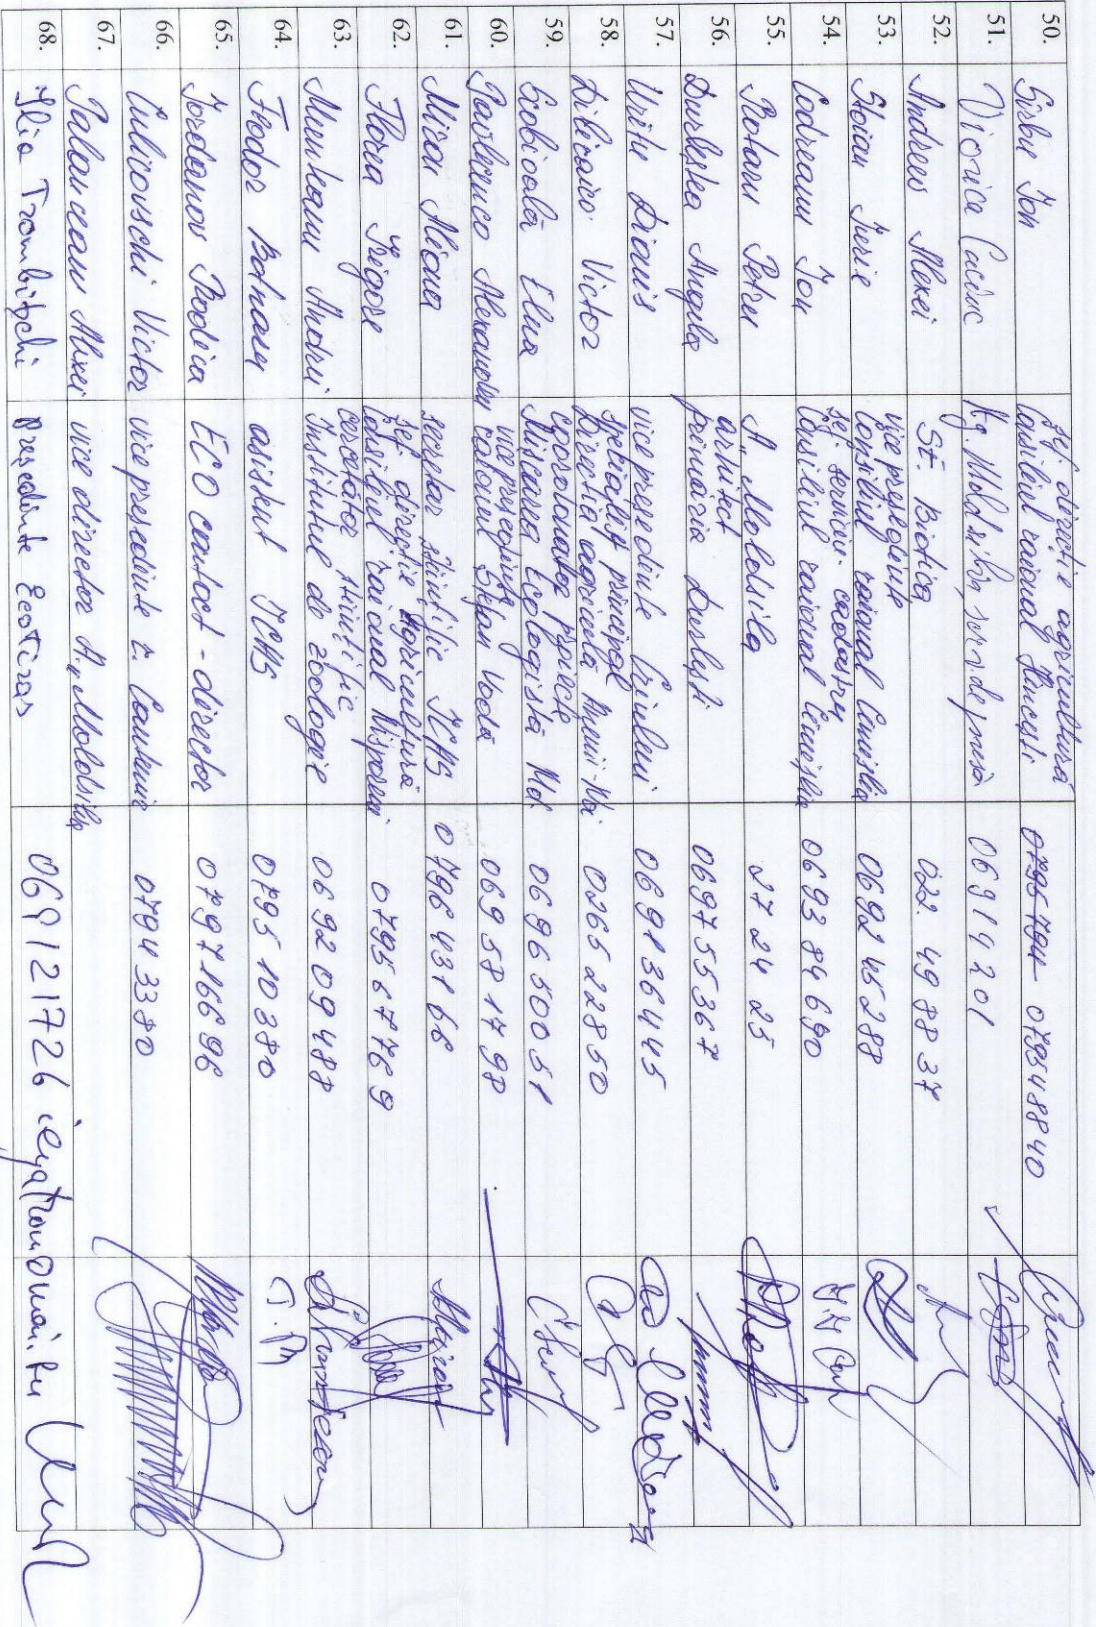 50. Sîrbu Ion șef. direcție agricultură Consiliul raional Hîncești 079548840
51. Viorica Caciuc Ag. Moldsilva, serv. de presă 06914201
52. Andreev Alexei SE. Biotica 022. 49 88 37
53. Stoian Iurie vicepreședinte Consiliul raional Cimișlia 0692 45 288
54. Codreanu Ion șef. serviciu cadastru Consiliul raional Cimișlia 0693 84 690
55. Rotaru Petru A. „Moldsilva 27 24 25
56. Durleștea Angela arhitect primăria Durlești 0697 55 367
57. Ursu Dionis vicepreședinte Criuleni 0691 36 445
58. Victor specialist principal Direcția agricolă Anenii-Noi 0265 2 28 50
59. Scobioală Elena coordonator proiecte Mișcarea Ecologistă Md. 0696 500 51
60. Pavlenco Alexandru vicepreședinte raionul Ștefan Vodă 069 58 17 98
61. Miron Aliona secretar științific ICAS 0796 431 66
62. Florea Grigore șef. direcție Agricultură Consiliul raional Nisporeni 0795 67769
63. Munteanu Andrei cercetător științific Institutul de zoologie 0692 09 488
64. Teodor Botnaru asistent ICAS 0795 10 380
65. Iordanov Rodica ECO contact - director 0797 166 96
66. Culicovschi Victor vicepreședinte r. Căușeni 0794 3380
67. Palanceanu Alexei vice director A. „Moldsilva
68. Ilia Trombițchi președinte EcoTiras 069121726